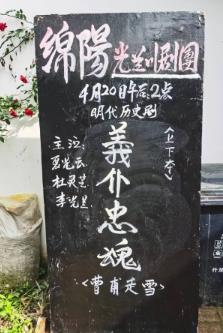 绵陽光兰川剧團
4月20日午后:2点
明代历史剧
(上下本)
義仆忠魂
主演:
杜灵芝
<曹甫走雪>